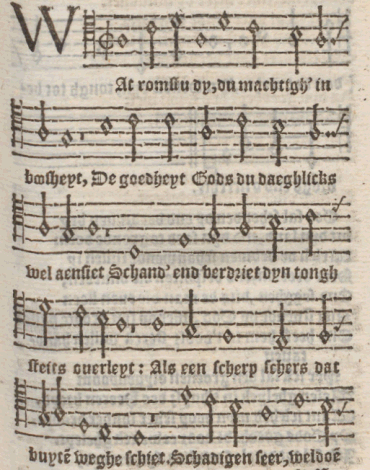 WAt romstu dy, du machtigh' in
boosheyt, De goedheyt Gods du daeghlicks
wel aensiet Schand' end verdriet dyn tongh
steits overleyt: Als een scherp schers dat
buytē weghe schiet. Schadigen seer, weldoē